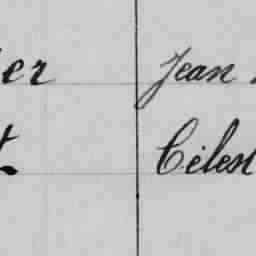 er Jean
t Célest